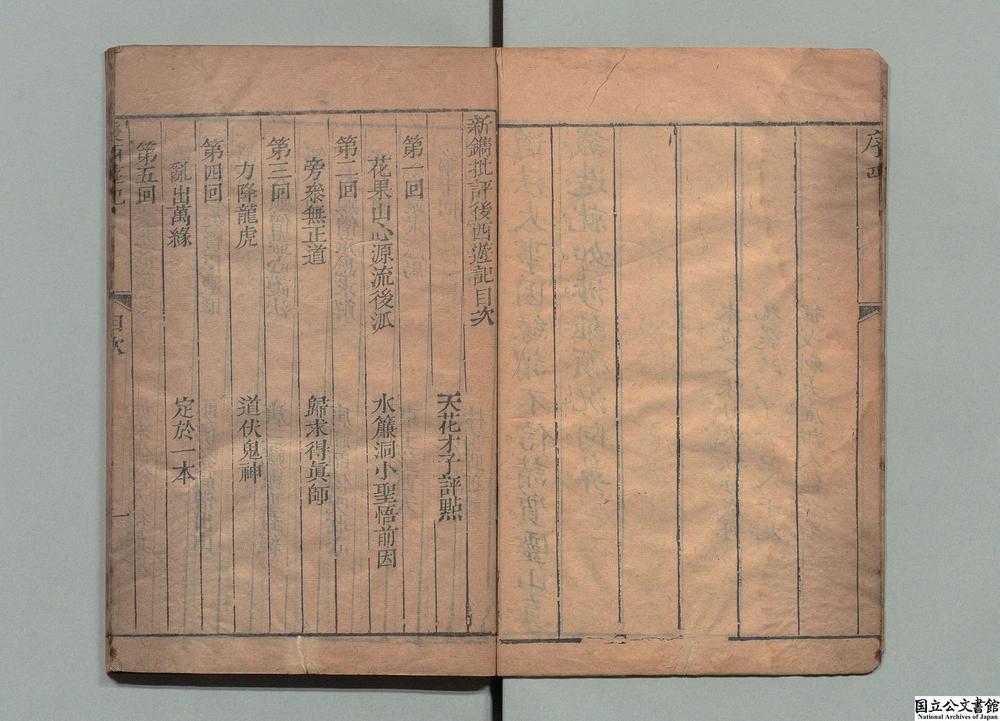 序四
新鐫批評後西遊記目次
天花才子評點
第一回
花果山心源流後派　水簾洞小聖悟前因
第二回
旁參無正道　歸求得眞師
第三回
力降龍虎　道伏鬼神
第四回
亂出萬緣　定於一本
第五回
目次
一
国立公文書館
National Archives of Japan